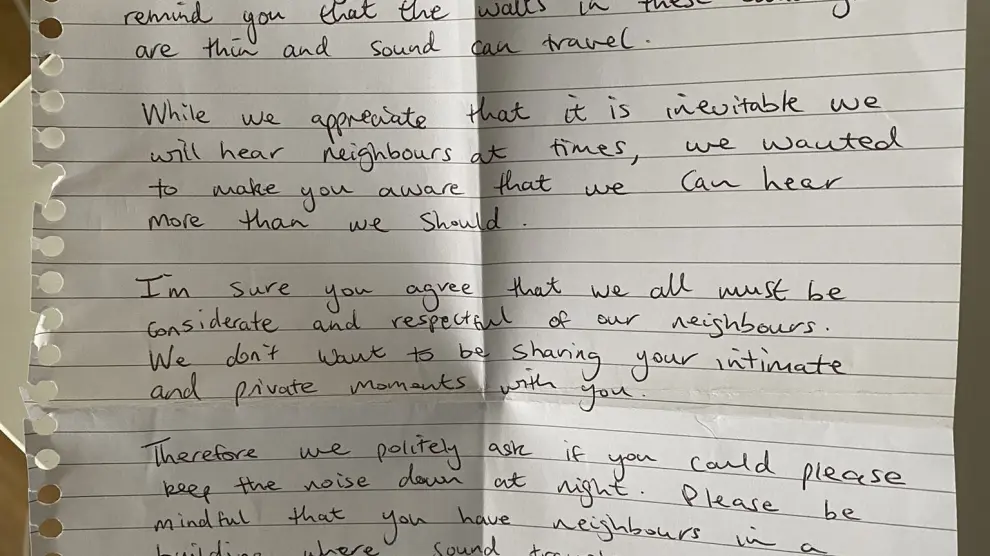 remind you that the walls in these
are thin and sound can travel.
While we appreciate that it is inevitable we
will hear neighbours at times, we wanted
to make you aware that we can hear
more than we should.
I'm sure you agree that we all must be
considerate and respectful of our neighbours.
We don't want to be sharing your intimate
and private moments with you.
Therefore we politely ask if you could please
keep the noise down at night. Please be
mindful that you have neighbours in a
building where sound